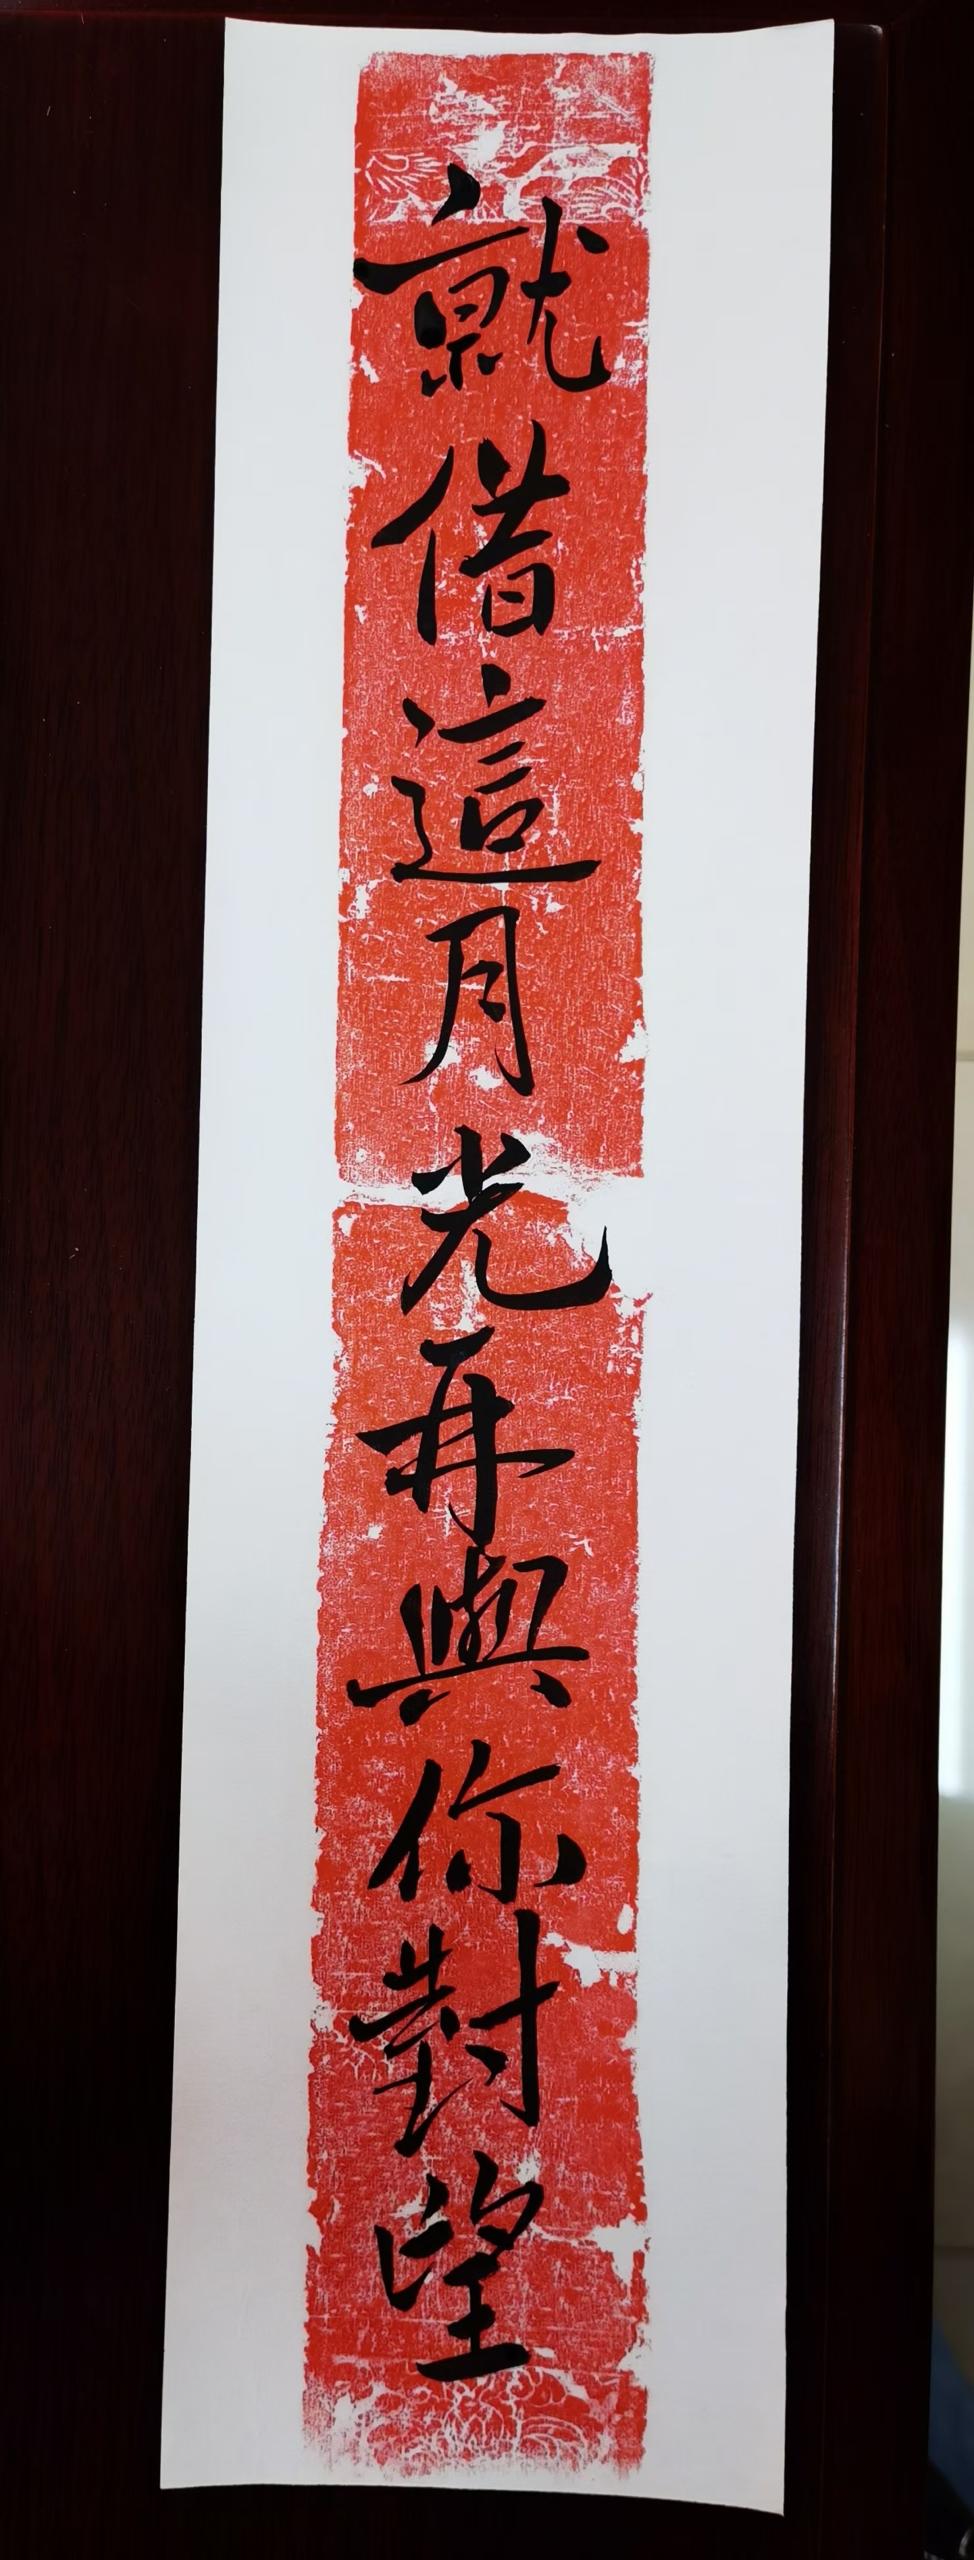 就借這月光再與你對望